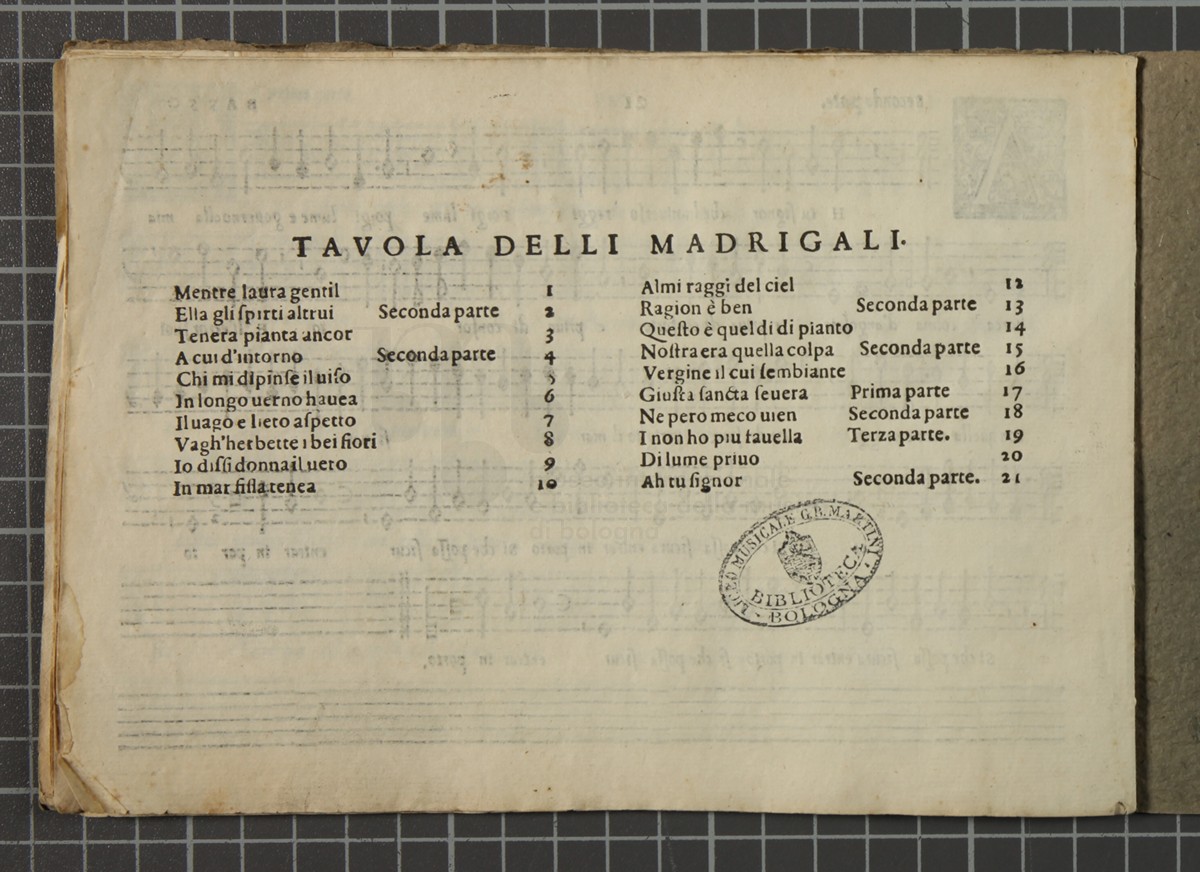 TAVOLA DELLI MADRIGALI.
Mentre laura gentil 1
Ella gli ſpirti altrui Seconda parte 2
Tenera pianta ancor 3
A cui d'intorno Seconda parte 4
Chi mi dipinſe il uiſo 5
In longo uerno hauea 6
Il uago e lieto aſpetto 7
Vagh'herbette i bei fiori 8
Io diſſi donna il uero 9
In mar fiſſa tenea 10
Almi raggi del ciel 12
Ragion è ben Seconda parte 13
Queſto è quel di di pianto 14
Noſtra era quella colpa Seconda parte 15
Vergine il cui ſembiante 16
Giuſta ſancta ſeuera Prima parte 17
Ne pero meco uien Seconda parte 18
I non ho piu fauella Terza parte. 19
Di lume priuo 20
Ah tu ſignor Seconda parte. 21
LICEO MUSICALE G.B. MARTINI
BIBLIOTECA
BOLOGNA